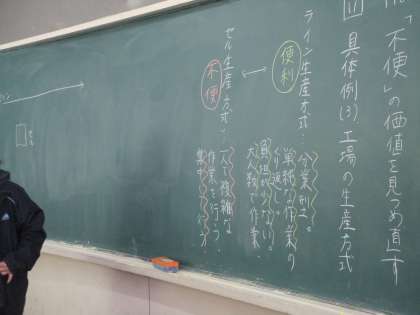 「不便」の価値を見つめ直す
具体例(3) 工場の生産方式
ライン生産方式…分業型。
単純な作業の
くり返し。
負担が少ない。
大人数で作業。
便利
↔
セル生産方式…一人で複雑な
作業を行う。
不便
ライン